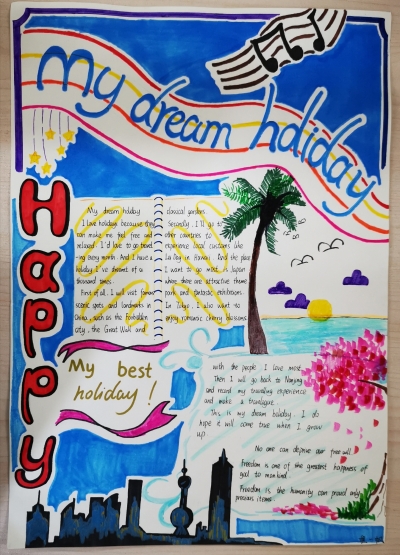 My dream holiday
Happy
My dream holiday
I love holiday because they
can make me feel free and
relaxed. I'd love to go travel
-ing every month. And I have a
holiday I've dreamt of a
thousand times.
First of all, I will visit famous
scenic spots and landmarks in
China, such as the Forbidden
city, the Great Wall and
classical gardens.
Secondly, I'll go to
other countries to
experience local customs like
La Day Hawaii. And the place
I want to go most is Japan
where there are attractive theme
park and fantastic exhibition.
In Tokyo, I also want to
enjoy romantic cherry blossoms
with the people I love most.
Then I will go back to Nanjing
and record my traveling experience
and make a travelogue.
This is my dream holiday. I do
hope it will come true when I grow
up.
My best
holiday!
No one can deprive our free will
Freedom is one of the greatest happiness of
god to mankind.
Freedom is the humanity can proud only
precious items